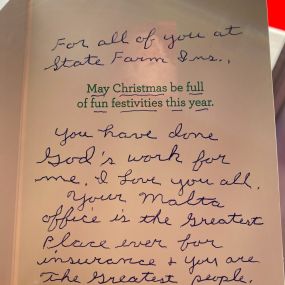 For all of you at
State Farm Ins.,
May Christmas be full
of fun festivities this year.
You have done
God's work for
me. I love you all.
Your Malta
office is the greatest
place ever for
insurance + you are
the greatest people.